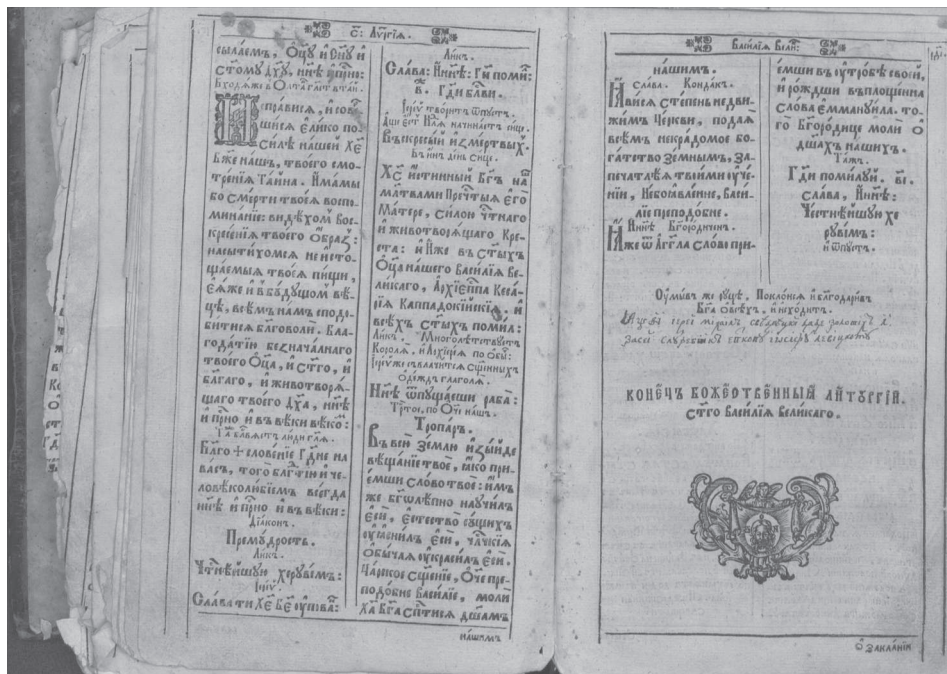 С: Лѵ҃ргїѧ.
сылаемъ, Ѻц҃у и҆ Сн҃у и҆
ст҃ому дх҃у, нн҃ѣ и҆ при҃но:
спра́висѧ, и҆ сове
шисѧ е҆ли́ко по
си́лѣ нашей Хе҃
Бж҃е нашъ, твоегѡ смо
тренїѧ Та́йна. И҆мамы
бо сме́рти твоеѧ воспо
минанїе: ви́дѣхомъ Вос
кресенїѧ твоегѡ Ѻ҆бразъ:
насытихомсѧ неисто
щаемыѧ твоеѧ пи́щи,
е҆ѧже и҆ въ бꙋ́дꙋщомъ вѣ
цѣ, всѣмъ намъ сподо
битисѧ благоволи. Бла
года́тїю безнача́лнаго
твоегѡ Ѻц҃а, и҆ ст҃го, и҆
бл҃гаго, и҆ животворѧ
щаго твоегѡ дх҃а, нн҃ѣ
и҆ при҃но и҆ въ вѣки вѣко҃:
Бл҃го + слове́нїе Гд҃не на
васъ, тогѡ бл҃гтїю и҆ че
ловѣколю́бїемъ всегда
нн҃ѣ и҆ при҃но и҆ въ вѣки:
Дїа́конъ.
Премꙋ́дрость.
Ли́къ.
Чт҃нѣ́йшую херꙋвимъ:
Їере́й
Сла́ва ти Хе҃ Бж҃е ᲂу҆пова҃:
Ли́къ.
Сла́ва: И҆ нн҃ѣ: Гд҃и поми҃:
в҃. Гд҃и бл҃ви.
Їере́й твори́тъ ѿпꙋстъ.
Въскресы́й и҆зъ ме́ртвыхъ.
Въ и҆нъ де́нь си́це.
Хс҃ и҆́стинный Бг҃ъ на҃
мл҃твами Прч҃тыѧ Е҆гѡ
Матере, си́лою чт҃наго
и҆ животворѧщаго Кре
ста: и҆ И҆́же въ ст҃ыхъ
Ѻ҆ц҃а нашего Васи́лїѧ Ве
ли́каго, А҆рхїеп҃па Кеса́
рїѧ Каппадокі́йскїѧ, и҆
всѣхъ ст҃ыхъ поми҃л:
Ли́къ. Многолѣ́тствꙋетъ
Королѧ, и҆ А҆рхїерѧ по Ѻ҆бы:
Їере́й же съвлачи́тсѧ сщ҃енныхъ
Ѻ҆де́ждъ глаго́лѧ.
Нн҃ѣ ѿпꙋща́еши раба҃:
Трт҃ое, по Ѻ҆ч҃и нашъ.
Тропа́рь.
Въ всю̀ зе́млю и҆зы́йде
вѣща́нїе твое, ꙗ҆́ко при
е҆́мши сло́во твое: и҆́мъ
же бг҃олѣ́пно наꙋчи́лъ
е҆сѝ, е҆стество̀ сꙋ́щихъ
ᲂу҆ѧсни́лъ е҆сѝ, чл҃чскїѧ
Ѻ҆быча́ѧ ᲂу҆краси́лъ е҆сѝ.
Ца́рское сщ҃енїе, Ѻ҆́че пре
подо́бне Васи́лїе, моли
Ха҃ Бг҃а сп҃стисѧ дш҃амъ
нашимъ
Васи́лїѧ Вели҃:
нашимъ.
Сла́ва. Конда́къ.
Ꙗ҆ви́сѧ степе́нь недви
жимъ Церкви, подаѧ
всѣмъ некрадо́мое бо
га́тство земны́мъ, За
печатлѣѧ твои́ми ᲂу҆че
нїи, Небоѧвле́нне, Васи
лїе преподо́бне.
И҆ нн҃ѣ Бг҃оро́диченъ.
Ꙗ҆́же ѿ А҆́гг҃ла сло́во при
е҆́мши въ ᲂу҆тро́бѣ свое́й,
и҆ ро́ждши въплоще́нна
сло́ва Е҆ммануила. То
го҃ Бг҃оро́дице моли ѻ҆
дш҃ахъ нашихъ.
Та́жъ.
Гд҃и поми́лꙋй. в҃і.
сла́ва, И҆ нн҃ѣ:
Честнѣ́йшꙋю хе
рꙋви́мъ:
и҆ ѿпꙋстъ.
Оу҆мы́въ же рꙋцѣ, Поклони́сѧ и҆ благодари́въ
Бг҃а ѻ҆ всѣхъ, и҆схо́дитъ.
КОНЕ́ЦЪ БОЖЕ́СТВЕННЫѦ ЛИТꙊРГІ́И.
Ст҃го васи́лїѧ вели́каго.
Ѻ҆ Закла́нїи